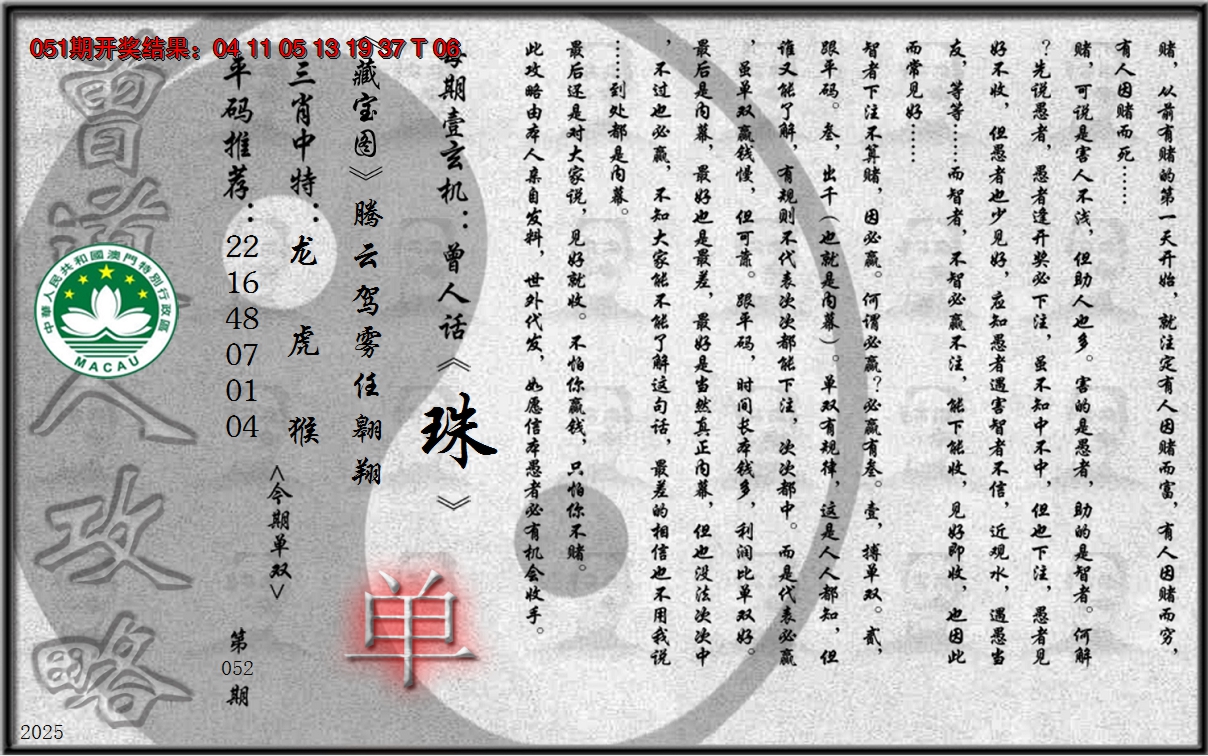 051期开奖结果：04 11 05 13 19 37 T 06
赌，从前有赌的第一天开始，就注定有人因赌而富，有人因赌而穷，
有人因赌而死……
赌，可说是害人不浅，但助人也多。害的是愚者，助的是智者。何解
？先说愚者，愚者逢开奖必下注，虽不知中不中，但也下注，愚者见
好不收，但愚者也少见好，应知愚者遇害智者不信，近观水，遇愚当
友，等等……而智者，不智必赢不注，能下能收，见好即收，也因此
而常见好……
智者下注不算赌，因必赢。何谓必赢？必赢有叁。壹，搏单双。贰，
跟平码。叁，出千（也就是内幕）。单双有规律，这是人人都知，但
谁又能了解，有规则不代表次次都能下注，次次都中。而是代表必赢
，虽单双赢钱慢，但可靠。跟平码，时间长本钱多，利润比单双好。
最后是内幕，最好也是最差，最好是当然真正内幕，但也没法次次中
，不过也必赢，不知大家能不能了解这句话，最差的相信也不用我说
……到处都是内幕。
最后还是对大家说，见好就收。不怕你赢钱，只怕你不赌。
此攻略由本人亲自发料，世外代发，如愿信本愚者必有机会收手。
每期壹玄机：曾人话《珠》
《藏宝图》腾云驾雾任翱翔
三肖中特：龙 虎 猴
<今期单双>
单
平码推荐：
22
16
48
07
01
04
第
052
期
曾道人攻略
中華人民共和國澳門特別行政區
MACAU
2025